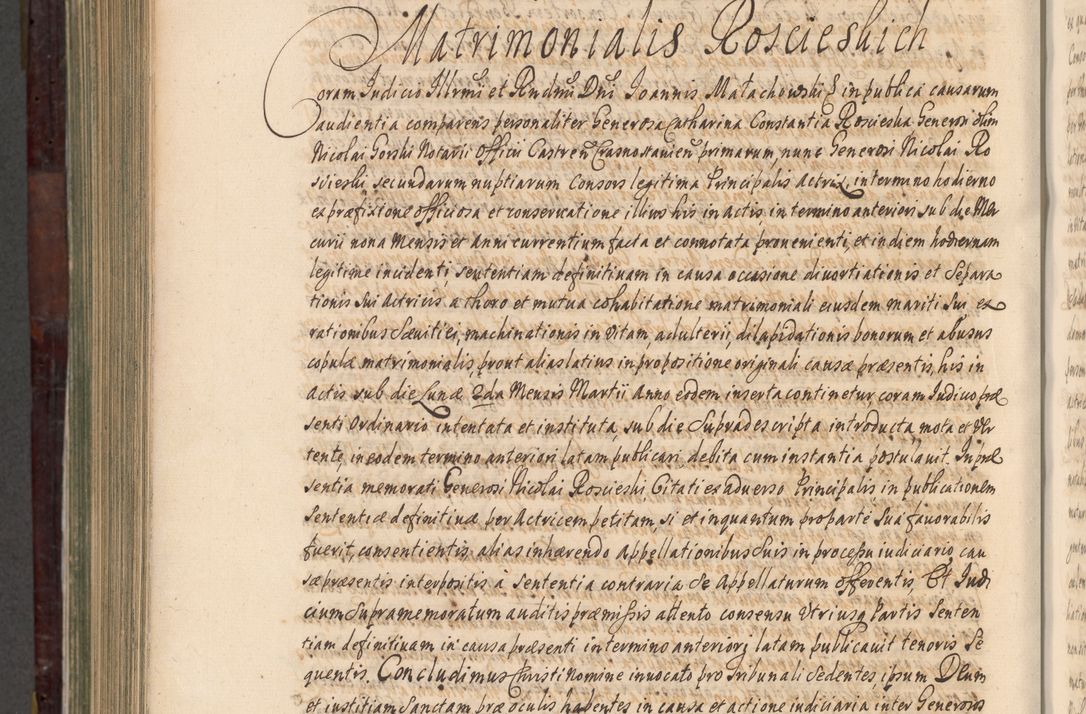 Matrimonialis Roscieskich
Coram Judicio Illrmi et Rndmi Dni Joannis Małachowski E in publica causarum
audientia comparens personaliter Generosa Catharina Constantia Roscieska Generosi olim
Nicolai Gorski Notarii Officii Castren Crasnostavien primarum, nunc Generosi Nicolai Ro
scieski secundarum nuptiarum Consors legitima Principalis Actrix, in termino hodierno
ex præfixione officiosa et conservatione illius his in actis in termino anteriori sub die Mer
curii nona Mensis et Anni currentium facta et connotata provenienti, et in diem hodiernam
legitime incidenti, sententiam definitivam in causa occasione divortiationis et separa
tionis sui Actricis, a thoro et mutua cohabitatione matrimoniali eiusdem mariti sui ex
rationibus sævitiei, machinationis in vitam, adulterii, dilapidationis bonorum et abusus
copulæ matrimonialis, prout alias latius in propositione originali causæ præsentis, his in
Actis sub die Lunæ 2da Mensis Martii Anno eodem inserta continetur coram Judicio præ
senti Ordinario intentata et instituta, sub die supradescripta introducta, mota et ver
tente, in eodem termino anteriori latam publicari, debita cum instantia postulavit. In præ
sentia memorati Generosi Nicolai Roscieski Citati ex adverso Principalis, in publicationem
sententiæ definitivæ per Actricem petitam, si et inquantum pro parte sua favorabilis
fuerit, consentientis, alias inhærendo Appellationibus suis in processu iudiciario cau
sæ præsentis interpositis à sententia contraria se Appellaturum offerentis, Et Judi
cium supramemoratum auditis præmissis attento consensu utriusq Partis senten
tiam definitivam in causa præsenti in termino anteriori latam publicavit tenoris se
quentis. Concludimus Christi Nomine invocato pro tribunali sedentes, ipsum Deum
et iustitiam sanctam præ oculis habentes in causa et actione iudiciaria inter Generosos